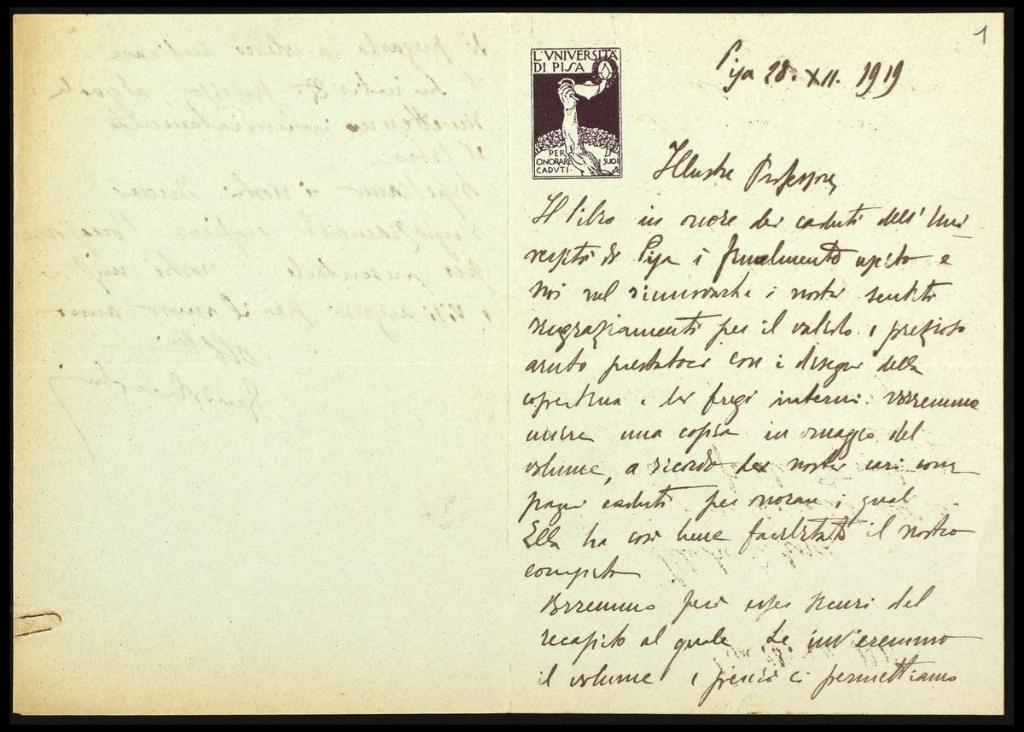 1
L'VNIVERSITÀ
DI PISA
PER I SUOI
ONORARE
CADVTI
Pisa 28. XII. 1919
Illustre Professore,
Il libro in onore dei caduti dell'Uni
versità di Pisa è finalmente uscito e
noi nel rinnovarle i nostri sentiti
ringraziamenti per il valido e prezioso
aiuto prestatoci con i disegni della
copertina e dei fregi interni vorremmo
unire una copia in omaggio del
volume, a ricordo dei nostri cari com
pagni caduti per onorare i quali
Ella ha così bene facilitato il nostro
compito
Vorremmo però esser sicuri del
recapito al quale Le invieremmo
il volume e perciò ci permettiamo